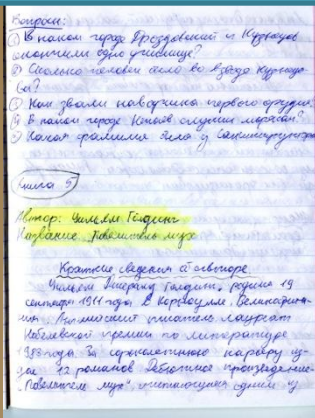 Вопросы:
① В каком городе Дроздовский и Кузнецов
окончили одно училище?
② Сколько человек было во взводе Кузнецо-
ва?
③ Как звали наводчика первого орудия?
④ В каком городе служил моряком?
⑤ Какая фамилия была у Санинструктора
Книга 5
Автор: Уильям Голдинг
Название "Повелитель мух"
Краткие сведения об авторе.
Уильям Голдинг, родился 19
сентября 1911 года, в Корнуолле, Великобрита-
ния писатель лауреат
Нобелевской премии по литературе
1983 года. За карьеру из-
дал 12 романов. Дебютное произведение-
"Повелитель мух", считающийся одним из